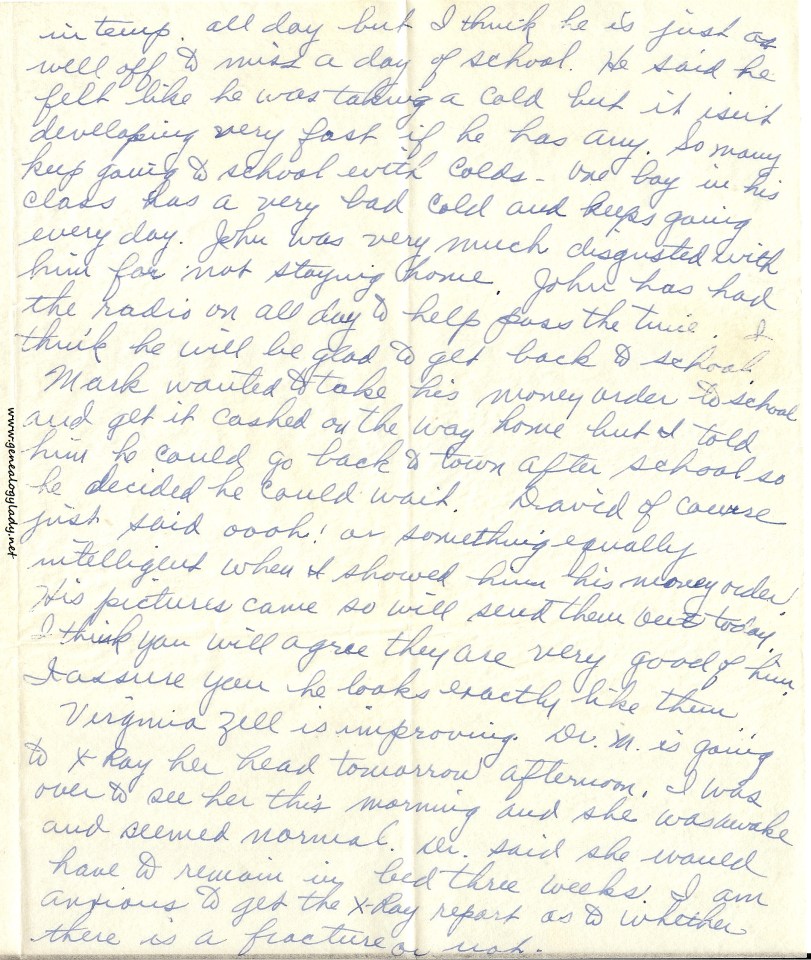 in temp. all day but I think he is just as
well off to miss a day of school. He said he
felt like he was taking a cold but it isn't
developing very fast if he has any. So many
keep going to school with colds - one boy in his
class has a very bad cold and keeps going
every day. John was very much disgusted with
him for not staying home. John has had
the radio on all day to help pass the time. I
think he will be glad to get back to school
Mark wanted to take his money order to school
and get it cashed on the way home but I told
him he could go back to town after school so
he decided he could wait. David of course
just said oooh! or something equally
intelligent when I showed him his money order.
His pictures came so will send them out today.
I think you will agree they are very good of him.
I assure you he looks exactly like them
Virginia Zell is improving. Dr. M. is going
to X Ray her head tomorrow afternoon. I was
over to see her this morning and she was awake
and seemed normal. Dr. said she would
have to remain in bed three weeks. I am
anxious to get the X-Ray report as to whether
there is a fracture or not.
www.genealogylady.net